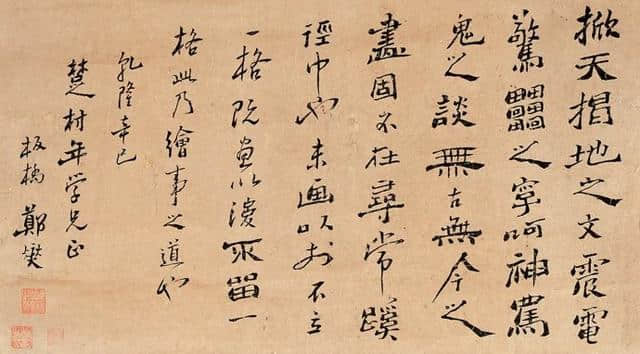 掀天揭地之文震電
驚靁之字呵神罵
鬼之談無古無今之
畫固不在尋常蹊
徑中也未画以前不立
一格既画以後不留一
格此乃繪事之道也
乾隆辛巳
楚村年学兄正
板橋鄭燮